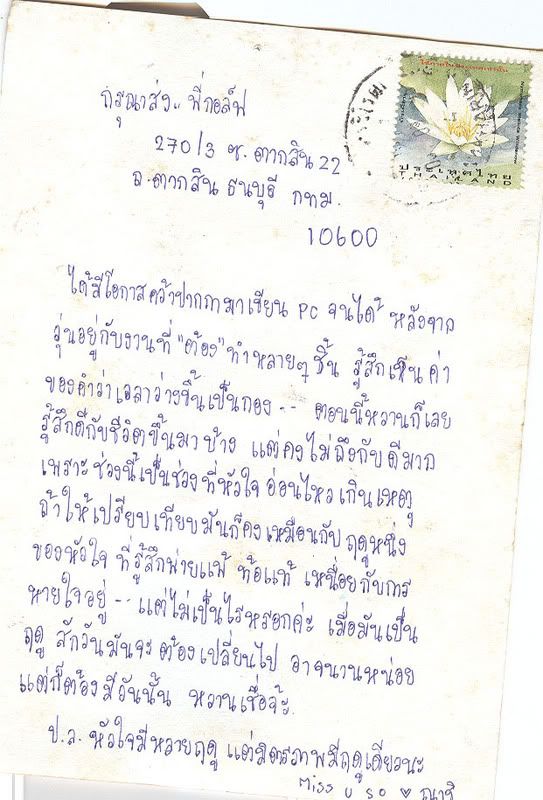 กรุณาส่ง.. พี่กอล์ฟ
270/3 ซ. ตากสิน 22
ถ.ตากสิน ธนบุรี กทม.
10600
ได้มีโอกาสคว้าปากกามาเขียน PC จนได้ หลังจาก
วุ่นอยู่กับงานที่ "ต้อง" ทำหลายๆ ชิ้น รู้สึกเห็นค่า
ของคำว่าเวลาว่างขึ้นเป็นกอง -- ตอนนี้หวานก็เลย
รู้สึกดีกับชีวิตขึ้นมาบ้าง แต่คงไม่ถึงกับดีมาก
เพราะช่วงนี้เป็นช่วงที่หัวใจอ่อนไหวเกินเหตุ
ถ้าให้เปรียบเทียบมันก็คงเหมือนกับ ฤดูหนึ่ง
ของหัวใจ ที่รู้สึกพ่ายแพ้ ท้อแท้ เหนื่อยกับการ
หายใจอยู่ -- แต่ไม่เป็นไรหรอกค่ะ เมื่อมันเป็น
ฤดู สักวันมันจะต้องเปลี่ยนไป อาจนานหน่อย
แต่ก็ต้องมีวันนั้น หวานเชื่อจ้ะ.
ป.ล. หัวใจมีหลายฤดู แต่มิตรภาพมีฤดูเดียวนะ
Miss U so ♥
ประเทศไทย
THAILAND